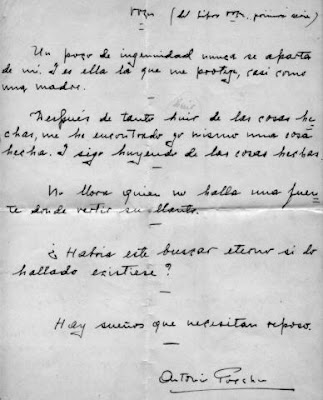 Voces (del libro Voces, primera serie)
Un poco de ingenuidad nunca se aparta
de mí. Y es ella la que me protege, casi como
una madre.
Después de tanto huir de las cosas he-
chas, me he encontrado yo mismo una cosa
hecha. Y sigo huyendo de las cosas hechas.
No llora quien no halla una fuen-
te donde verter su llanto.
¿Habría este buscar eterno si lo
hallado existiese?
Hay sueños que necesitan reposo.
Antonio Porchia